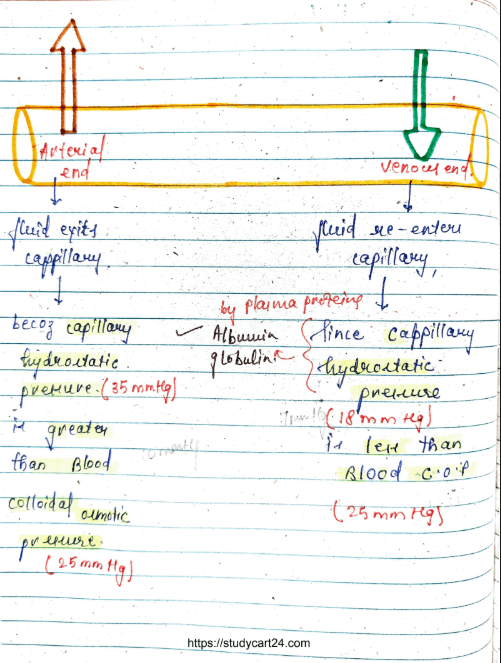 Arterial
end
venous end
fluid exits
cappillary.
becoz capillary
hydrostatic
pressure. (35 mmHg)
is greater
than Blood
colloidal osmotic
pressure.
(25 mmHg)
by plasma proteins
✓ Albumin
globulins
fluid re-enters
capillary,
Since cappillary
hydrostatic
pressure
(18 mm Hg)
is less than
Blood C.O.P
(25 mmHg)
https://studycart24.com